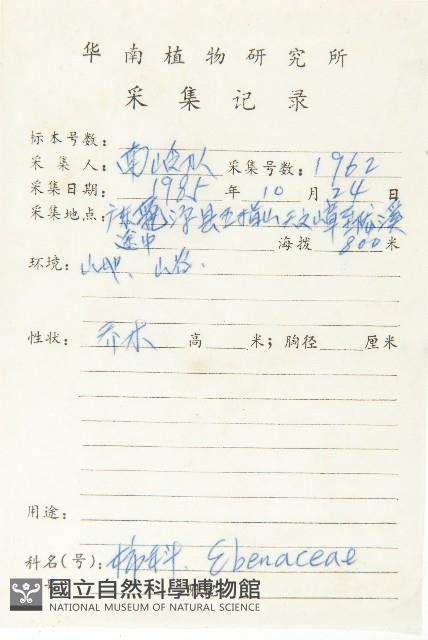 华南植物研究所
采集记录
标本号数：
采集人：南岭队 采集号数：1962
采集日期：1985年10月24日
采集地点：广东乳源县五指山
途中 海拨800米
环境：山地、山谷.
性状：乔木 高 米；胸径 厘米
用途：
科名(号)：柿科. Ebenaceae
國立自然科學博物館
NATIONAL MUSEUM OF NATURAL SCIENCE